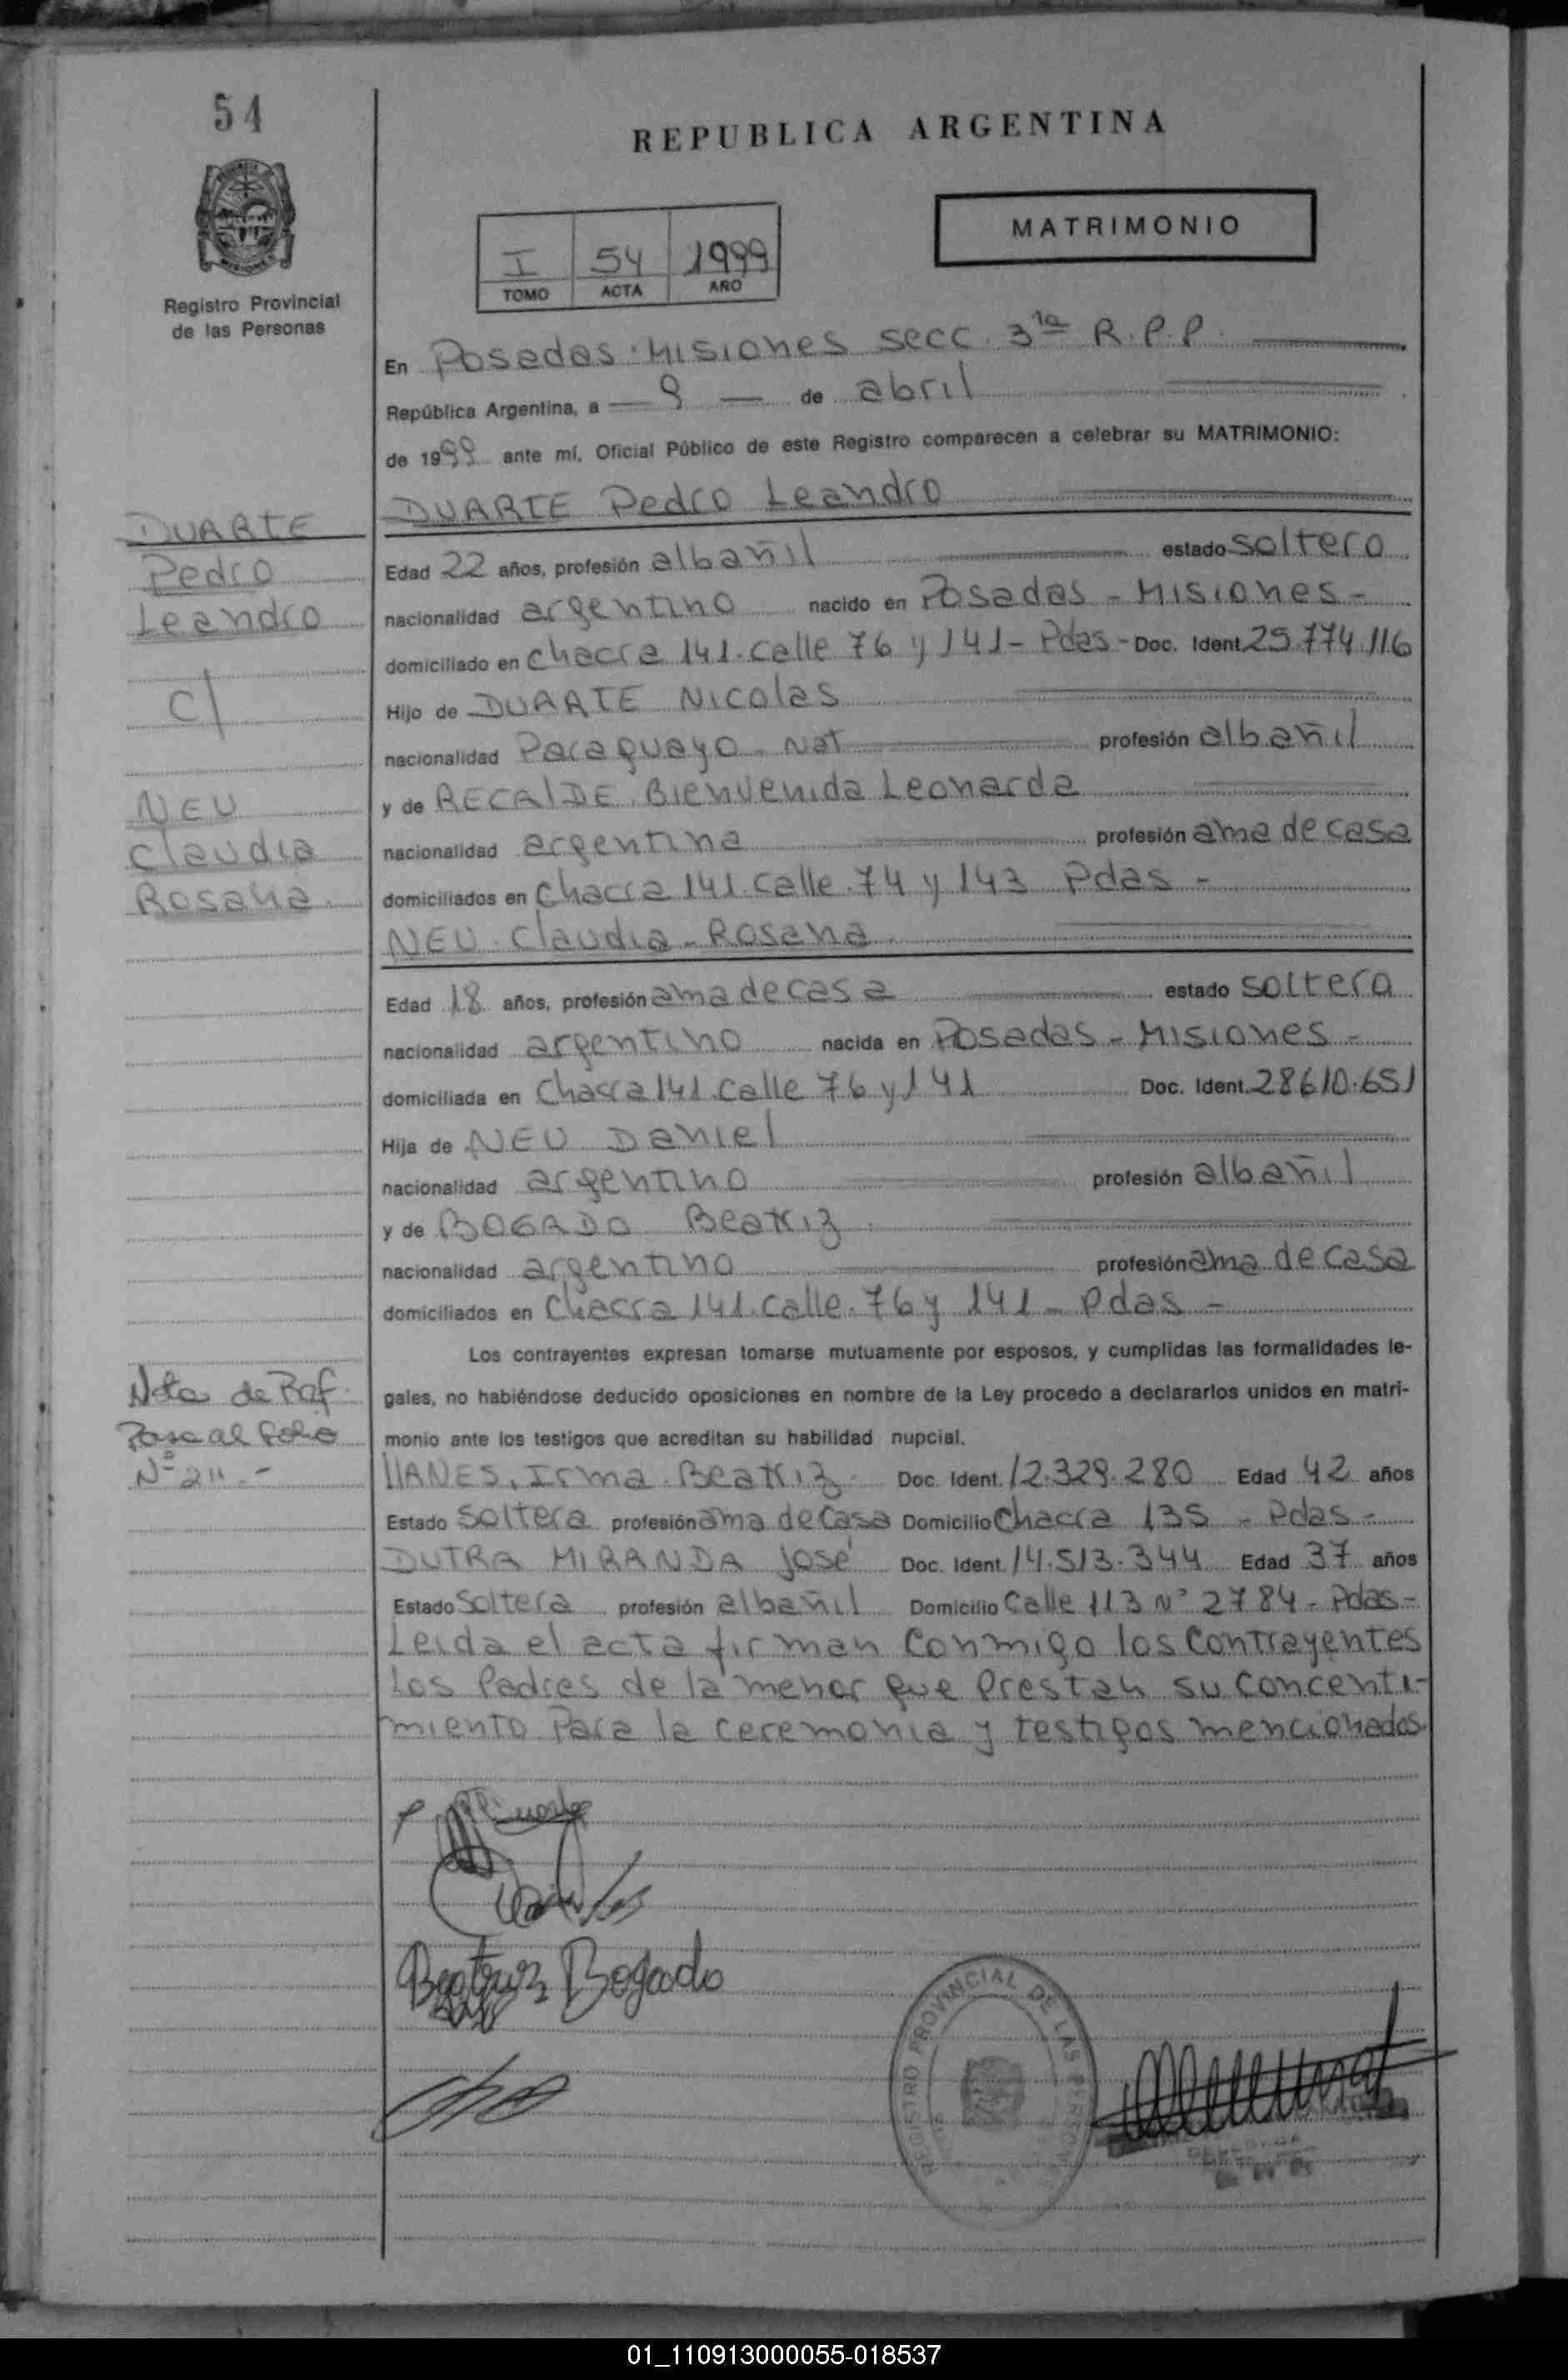 54
REPUBLICA ARGENTINA
MATRIMONIO
I 54 1999
TOMO ACTA AÑO
Registro Provincial
de las Personas
En Posadas. Misiones secc. 3ra R.P.P.
República Argentina, a — 9 — de abril
de 1999 ante mí, Oficial Público de este Registro comparecen a celebrar su MATRIMONIO:
DUARTE Pedro Leandro
DUARTE
Pedro
Leandro
c/
NEU
Claudia
Rosana.
Edad 22 años, profesión albañil estado soltero
nacionalidad argentino nacido en Posadas - Misiones -
domiciliado en chacra 141. calle 76 y 141 - Pdas - Doc. Ident. 25.774.116
Hijo de DUARTE Nicolas
nacionalidad Paraguayo. Nat profesión albañil
y de RECALDE. Bienvenida Leonarda
nacionalidad argentina profesión ama de casa
domiciliados en Chacra 141. calle. 74 y 143 Pdas -
NEU. Claudia - Rosana.
Edad 18 años, profesión ama de casa estado soltera
nacionalidad argentino nacida en Posadas - Misiones -
domiciliada en Chacra 141. calle 76 y 141 Doc. Ident. 28610.651
Hija de NEU Daniel
nacionalidad argentino profesión albañil
y de BOGADO Beatriz.
nacionalidad argentino profesión ama de casa
domiciliados en Chacra 141. calle. 76 y 141 - Pdas -
Los contrayentes expresan tomarse mutuamente por esposos, y cumplidas las formalidades le-
gales, no habiéndose deducido oposiciones en nombre de la Ley procedo a declararlos unidos en matri-
monio ante los testigos que acreditan su habilidad nupcial.
Nota de Ref.
Pase al folio
Nº 211.-
LLANES, Irma. Beatriz. Doc. Ident. 12.329.280 Edad 42 años
Estado soltera profesión ama de casa Domicilio Chacra 135 - Pdas -
DUTRA MIRANDA José Doc. Ident. 14.513.344 Edad 37 años
Estado soltera profesión albañil Domicilio Calle 113 Nº 2784 - Pdas -
Leida el acta firman conmigo los contrayentes
los Padres de la menor que prestan su concenti-
miento para la ceremonia y testigos mencionados.
Beatriz Bogado
REGISTRO PROVINCIAL DE LAS PERSONAS
01_110913000055-018537